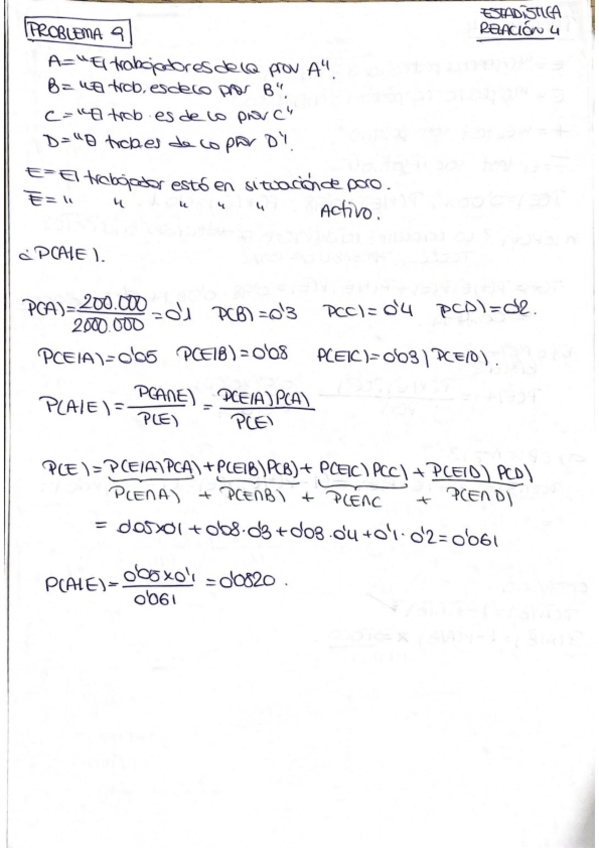 ESTADÍSTICA
RELACIÓN 4
PROBLEMA 9
A = "El trabajador es de la prov A".
B = "El trab. es de la prov B".
C = "El trab. es de la prov C"
D = "El trab. es de la prov D".
E = El trabajador está en situación de paro.
E̅ = " " " " " Activo.
¿P(A|E).
P(A) = 200.000/2000.000 = 0'1 P(B) = 0'3 P(C) = 0'4 P(D) = 0'2.
P(E|A) = 0'05 P(E|B) = 0'08 P(E|C) = 0'03 | P(E|D).
P(A|E) = P(A∩E)/P(E) = P(E|A) P(A)/P(E)
P(E) = P(E|A) P(A) + P(E|B) P(B) + P(E|C) P(C) + P(E|D) P(D)
P(E∩A) + P(E∩B) + P(E∩C + P(E∩D)
= 0'05x0'1 + 0'08·0'3 + 0'03·0'4 + 0'1·0'2 = 0'061
P(A|E) = 0'05x0'1/0'061 = 0'0820.